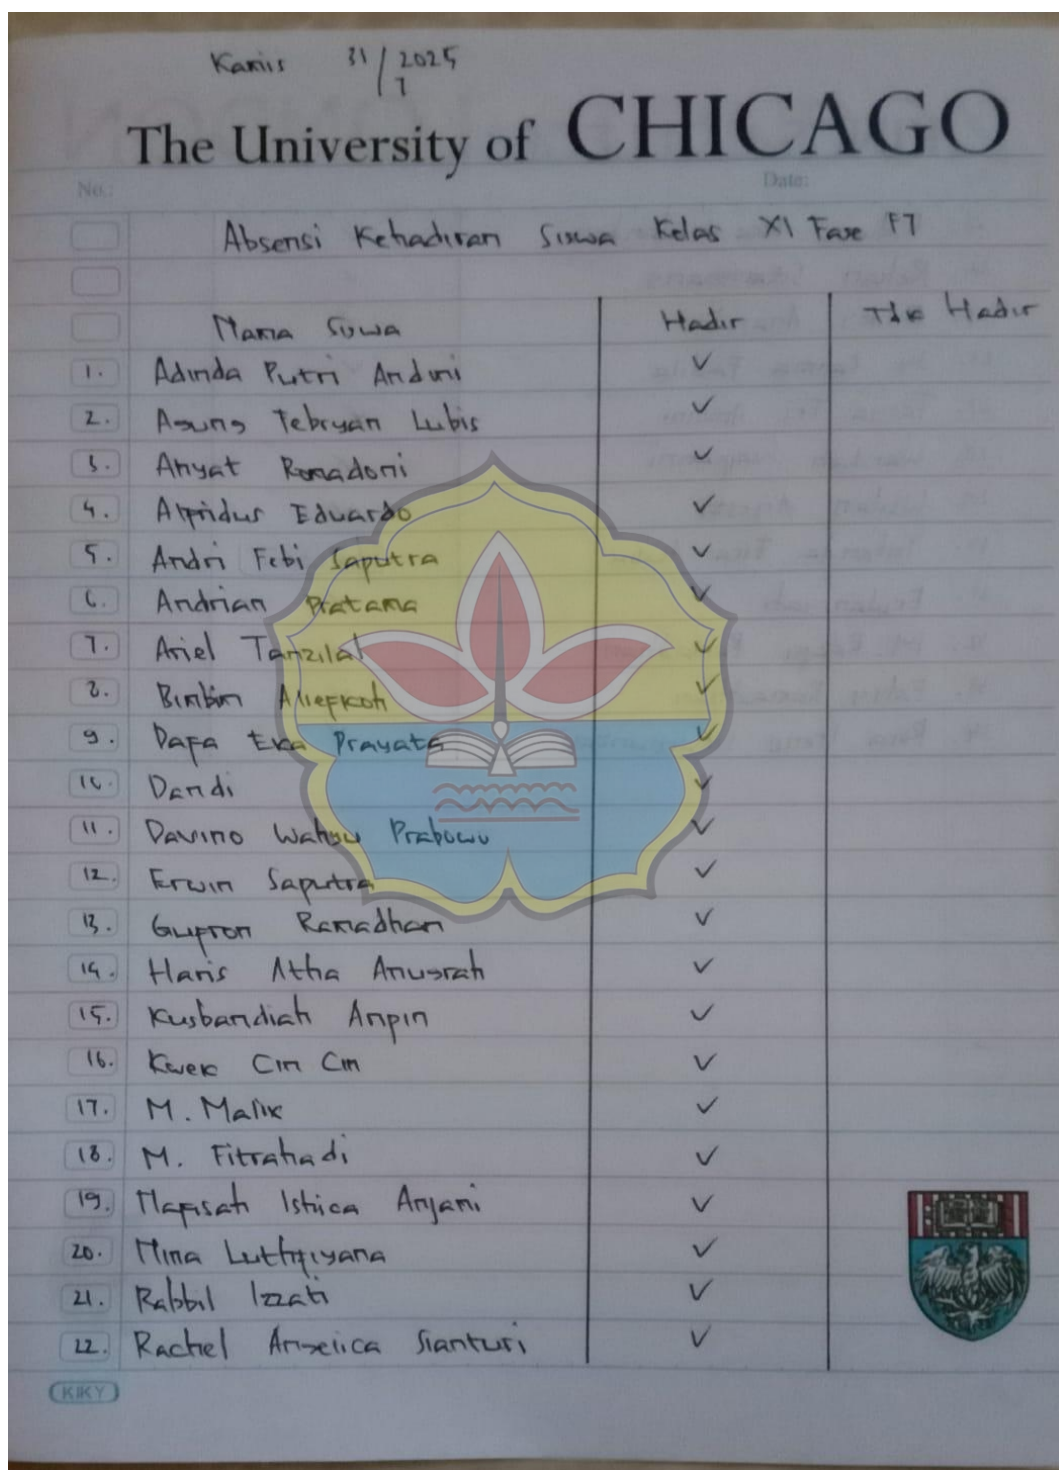 Kamis 31/7 2025
The University of CHICAGO
No.: Date:
Absensi Kehadiran Siswa Kelas XI Fase F7
Nama Siswa Hadir Tdk Hadir
1. Adinda Putri Andini ✓
2. Agung Febryan Lubis ✓
3. Ahyat Romadoni ✓
4. Alpridus Eduardo ✓
5. Andri Febi Saputra ✓
6. Andrian Pratama ✓
7. Ariel Tanzilal ✓
8. Bimbim ✓
9. Dafa Eka Prayata ✓
10. Dandi ✓
11. Davino Wahyu Prabowo ✓
12. Erwin Saputra ✓
13. Gufron Ramadhan ✓
14. Haris Atha Anugrah ✓
15. Kusbandiah Aripin ✓
16. Kwek Cin Cin ✓
17. M. Malik ✓
18. M. Fitrahadi ✓
19. Nafisah Istiica Anjani ✓
20. Nina Luthfiyana ✓
21. Rabbil Izzati ✓
22. Rachel Angelica Sianturi ✓
KIKY